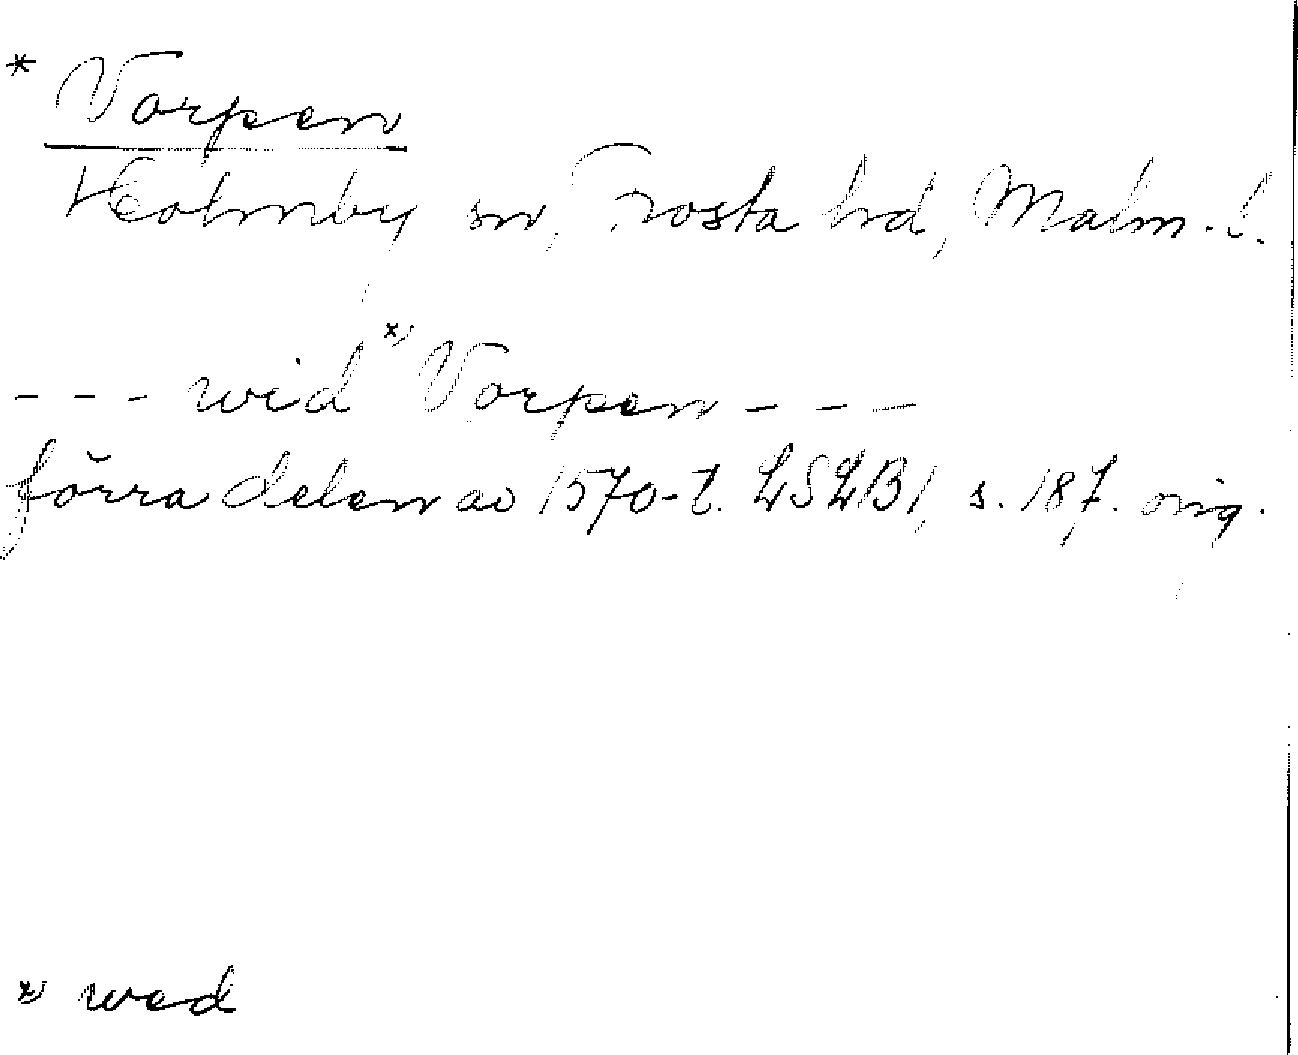 * Vorpen
Holmby sn, Frosta hd, Malm. l.
- - - wid x) Vorpen - - -
förra delen av 1570-t. LSLB1, s. 187. orig.
x) wed